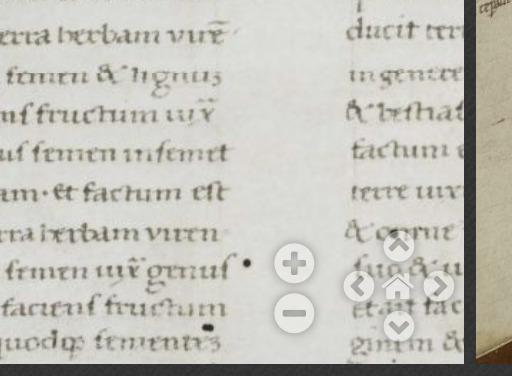 erra herbam virē
semen & lignū
ns fructum iux̄
us semen insemet
am. Et factum est
rra herbam viren
semen iux̄ genus
faciens fructum
quodq; sementē
ducit terr
in genere
& bestias
factum e
terre iux
& omne
suo. &
et ait fac